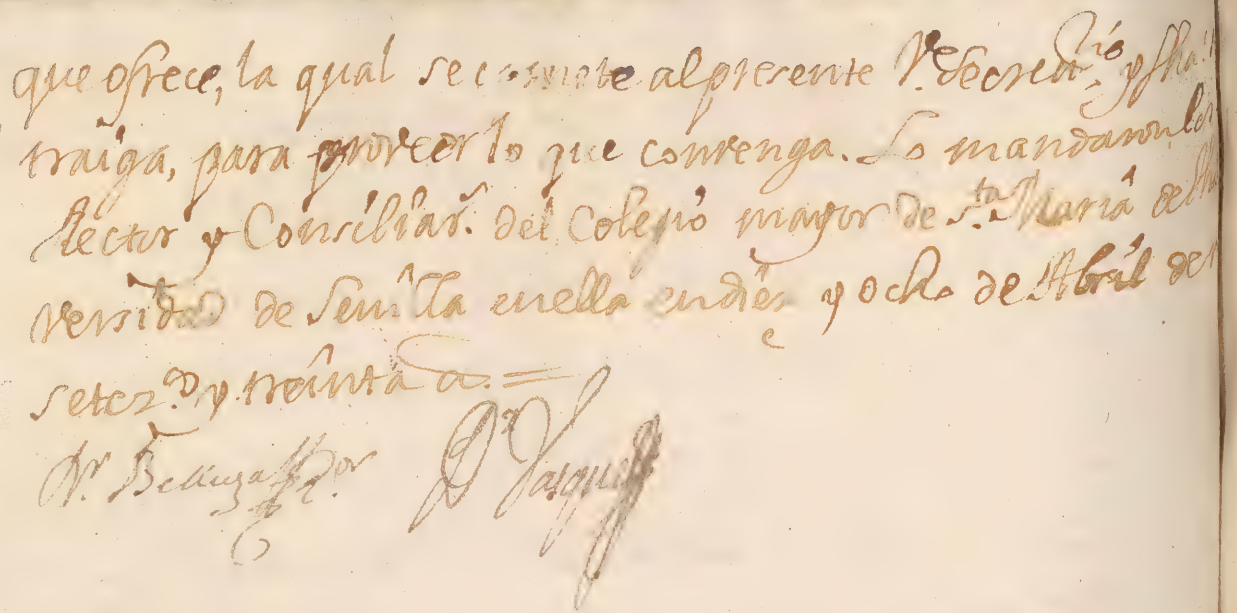 que ofrece, la qual se comete al presente Secret.rio y fha
traiga, para proveer lo que convenga. Lo mandaron los
Rector y Consiliar.s del Colegio mayor de S.ta Maria de Jhs
versidad de Sevilla en ella en dies y ocho de Abril de
setez.os y treinta a. =
D.r Belluga R.or D.r Vasquez